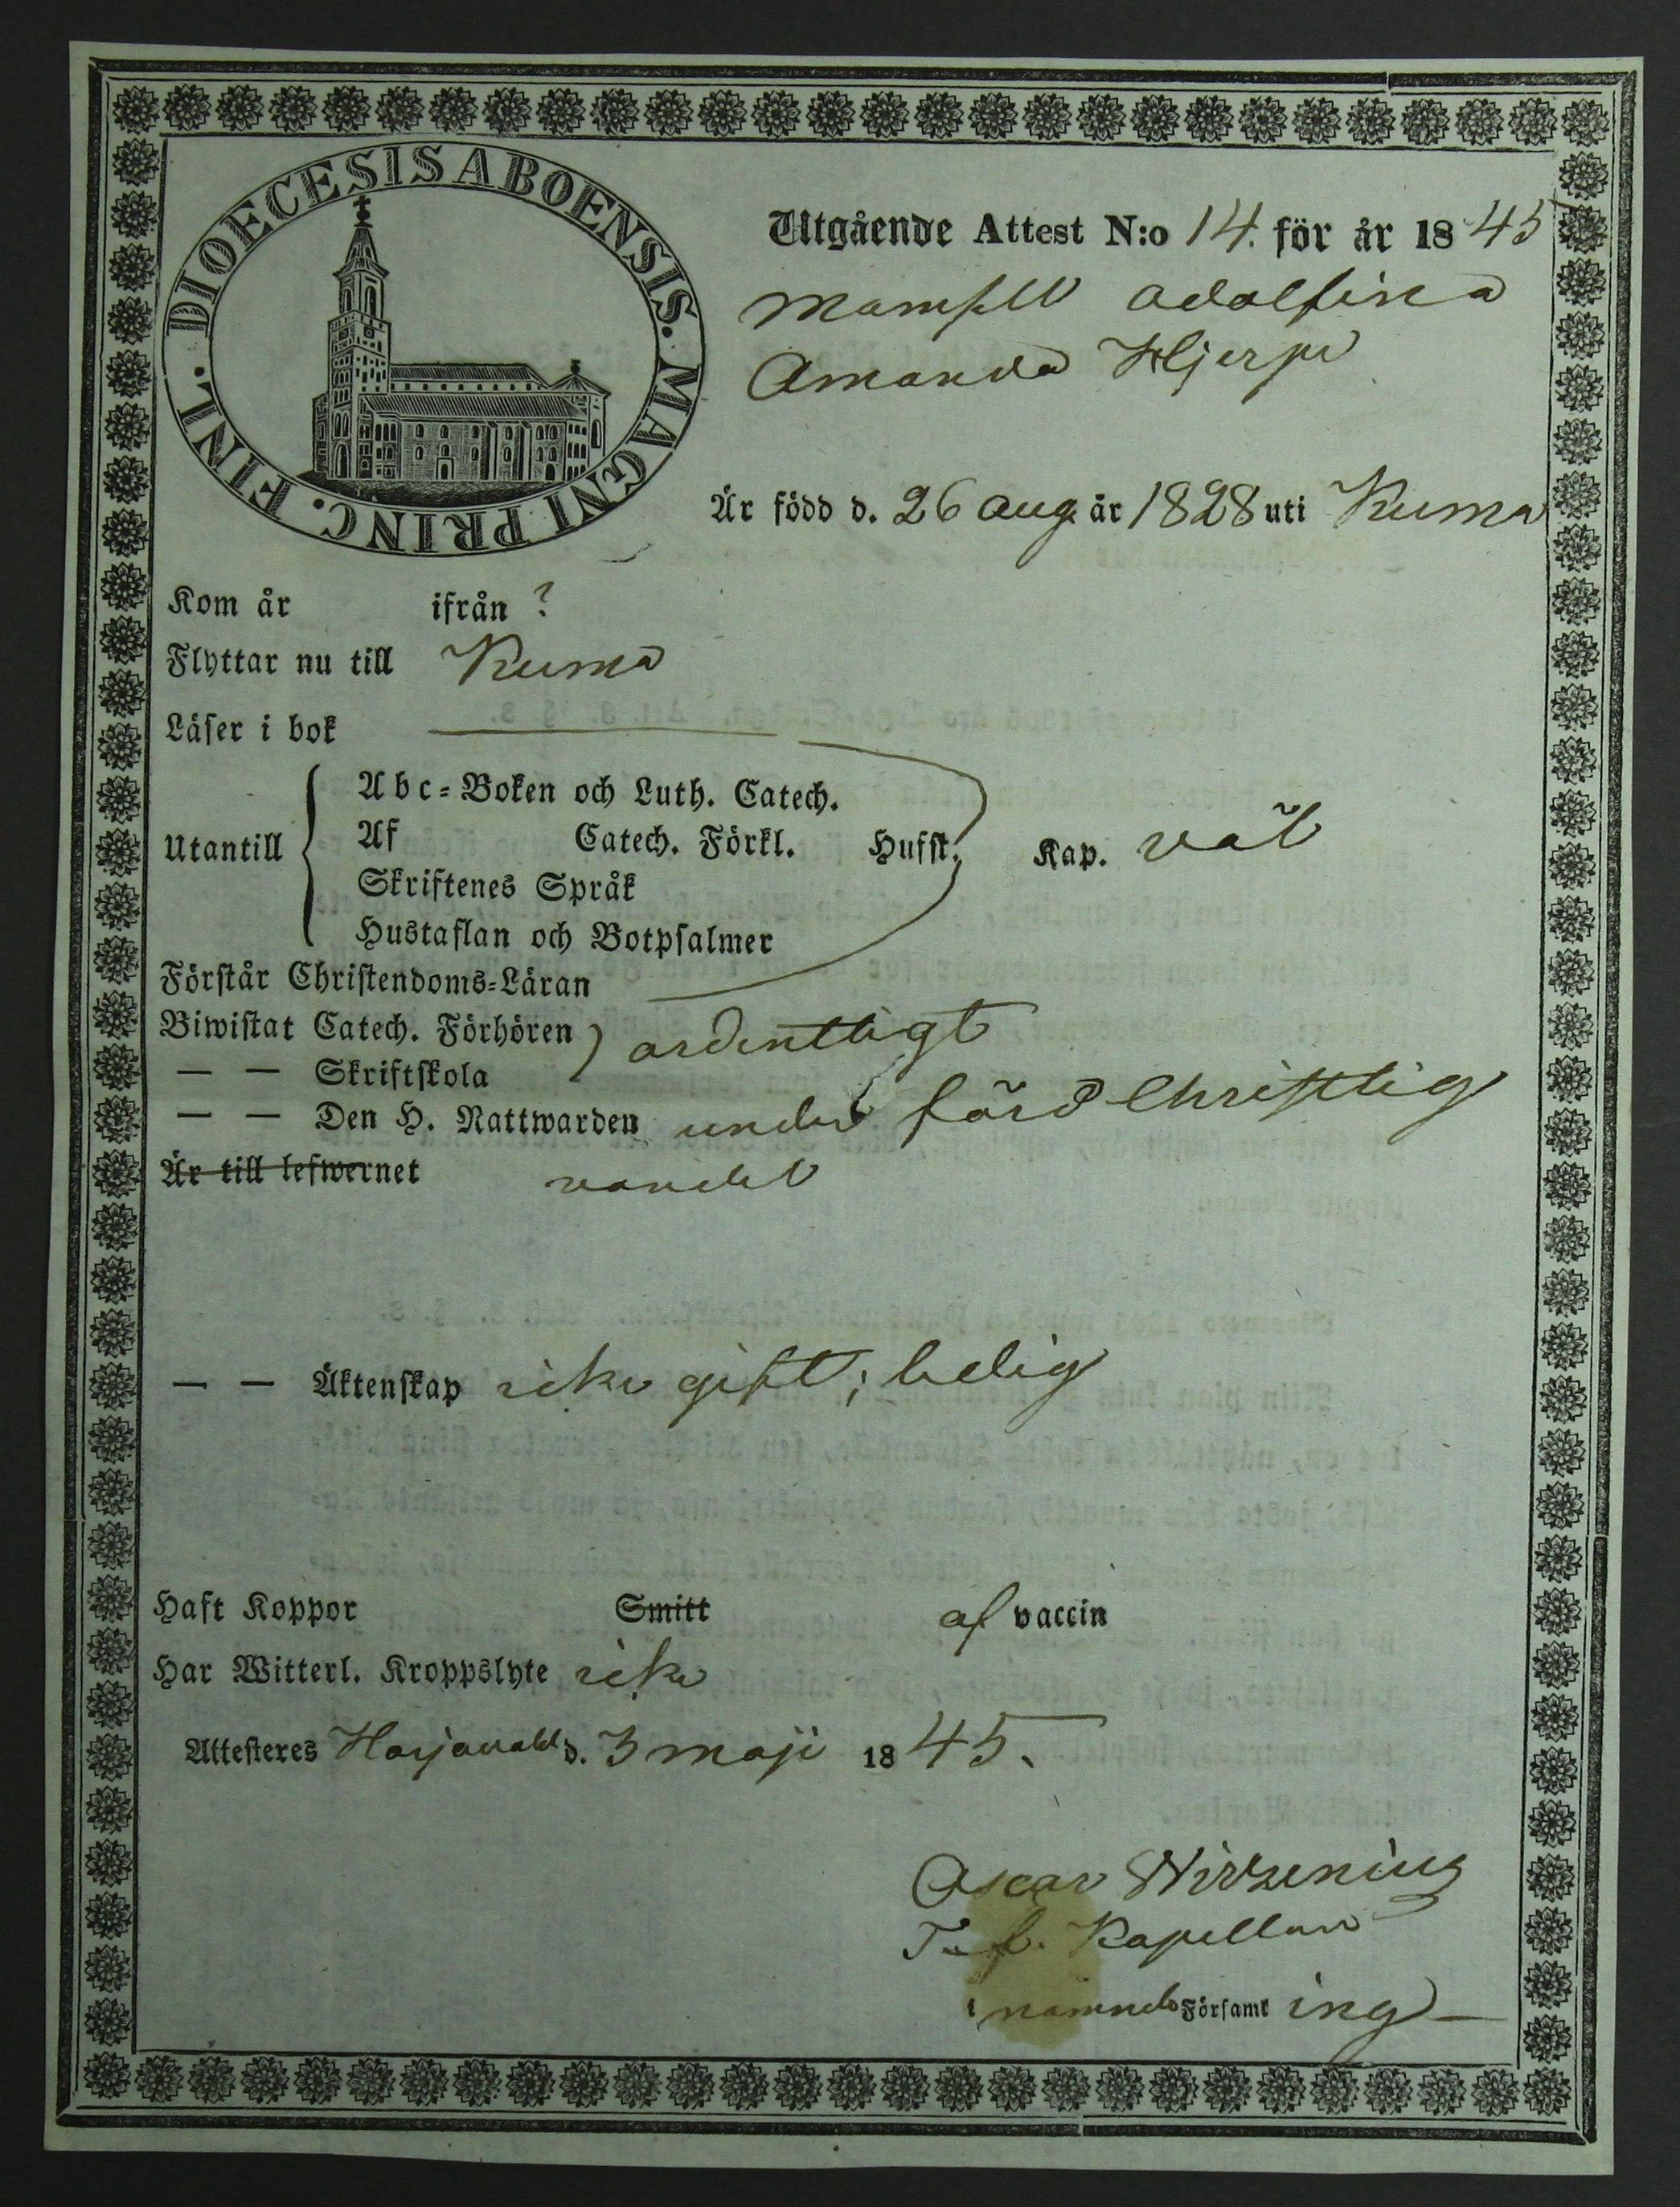 DIOECESIS ABOENSIS. MAGNI PRINC. FINL.
Utgående Attest N:o 14. för år 1845
Mamsell Adolfina
Amanda Hjerpe
Är född d. 26 Aug. år 1828 uti Kumo
Kom år ifrån ?
Flyttar nu till Kumo
Läser i bok
Utantill
Abc-Boken och Luth. Catech.
Af Catech. Förkl. Hufst. Kap. väl
Skriftenes Språk
Hustaflan och Botpsalmer
Förstår Christendoms-Läran
Biwistat Catech. Förhören ordentligt
— — Skriftskola
— — Den H. Nattwarden under förd Christlig
Är till lefwernet vandel
— — Äktenskap icke gift; ledig
Haft Koppor Smitt af vaccin
Har Witterl. Kroppslyte icke
Attesteres Harjavald d. 3 Maji 1845.
Oscar Wirzenius
T. f. Kapellan
i nämnde Församl ing